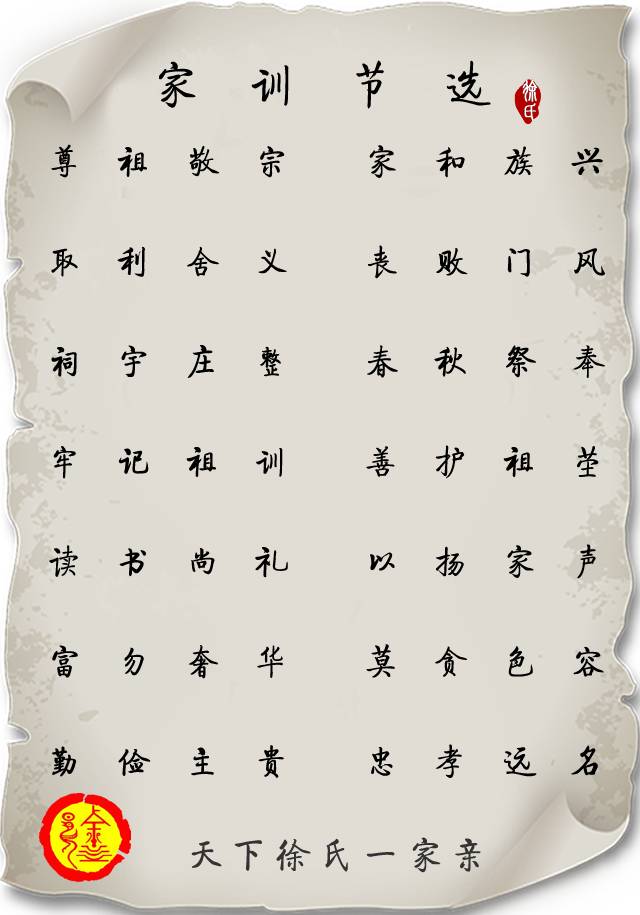 家训节选
徐氏
尊祖敬宗 家和族兴
取利舍义 丧败门风
祠宇庄整 春秋祭奉
牢记祖训 善护祖茔
读书尚礼 以扬家声
富勿奢华 莫贪色容
勤俭主贵 忠孝远名
天下徐氏一家亲